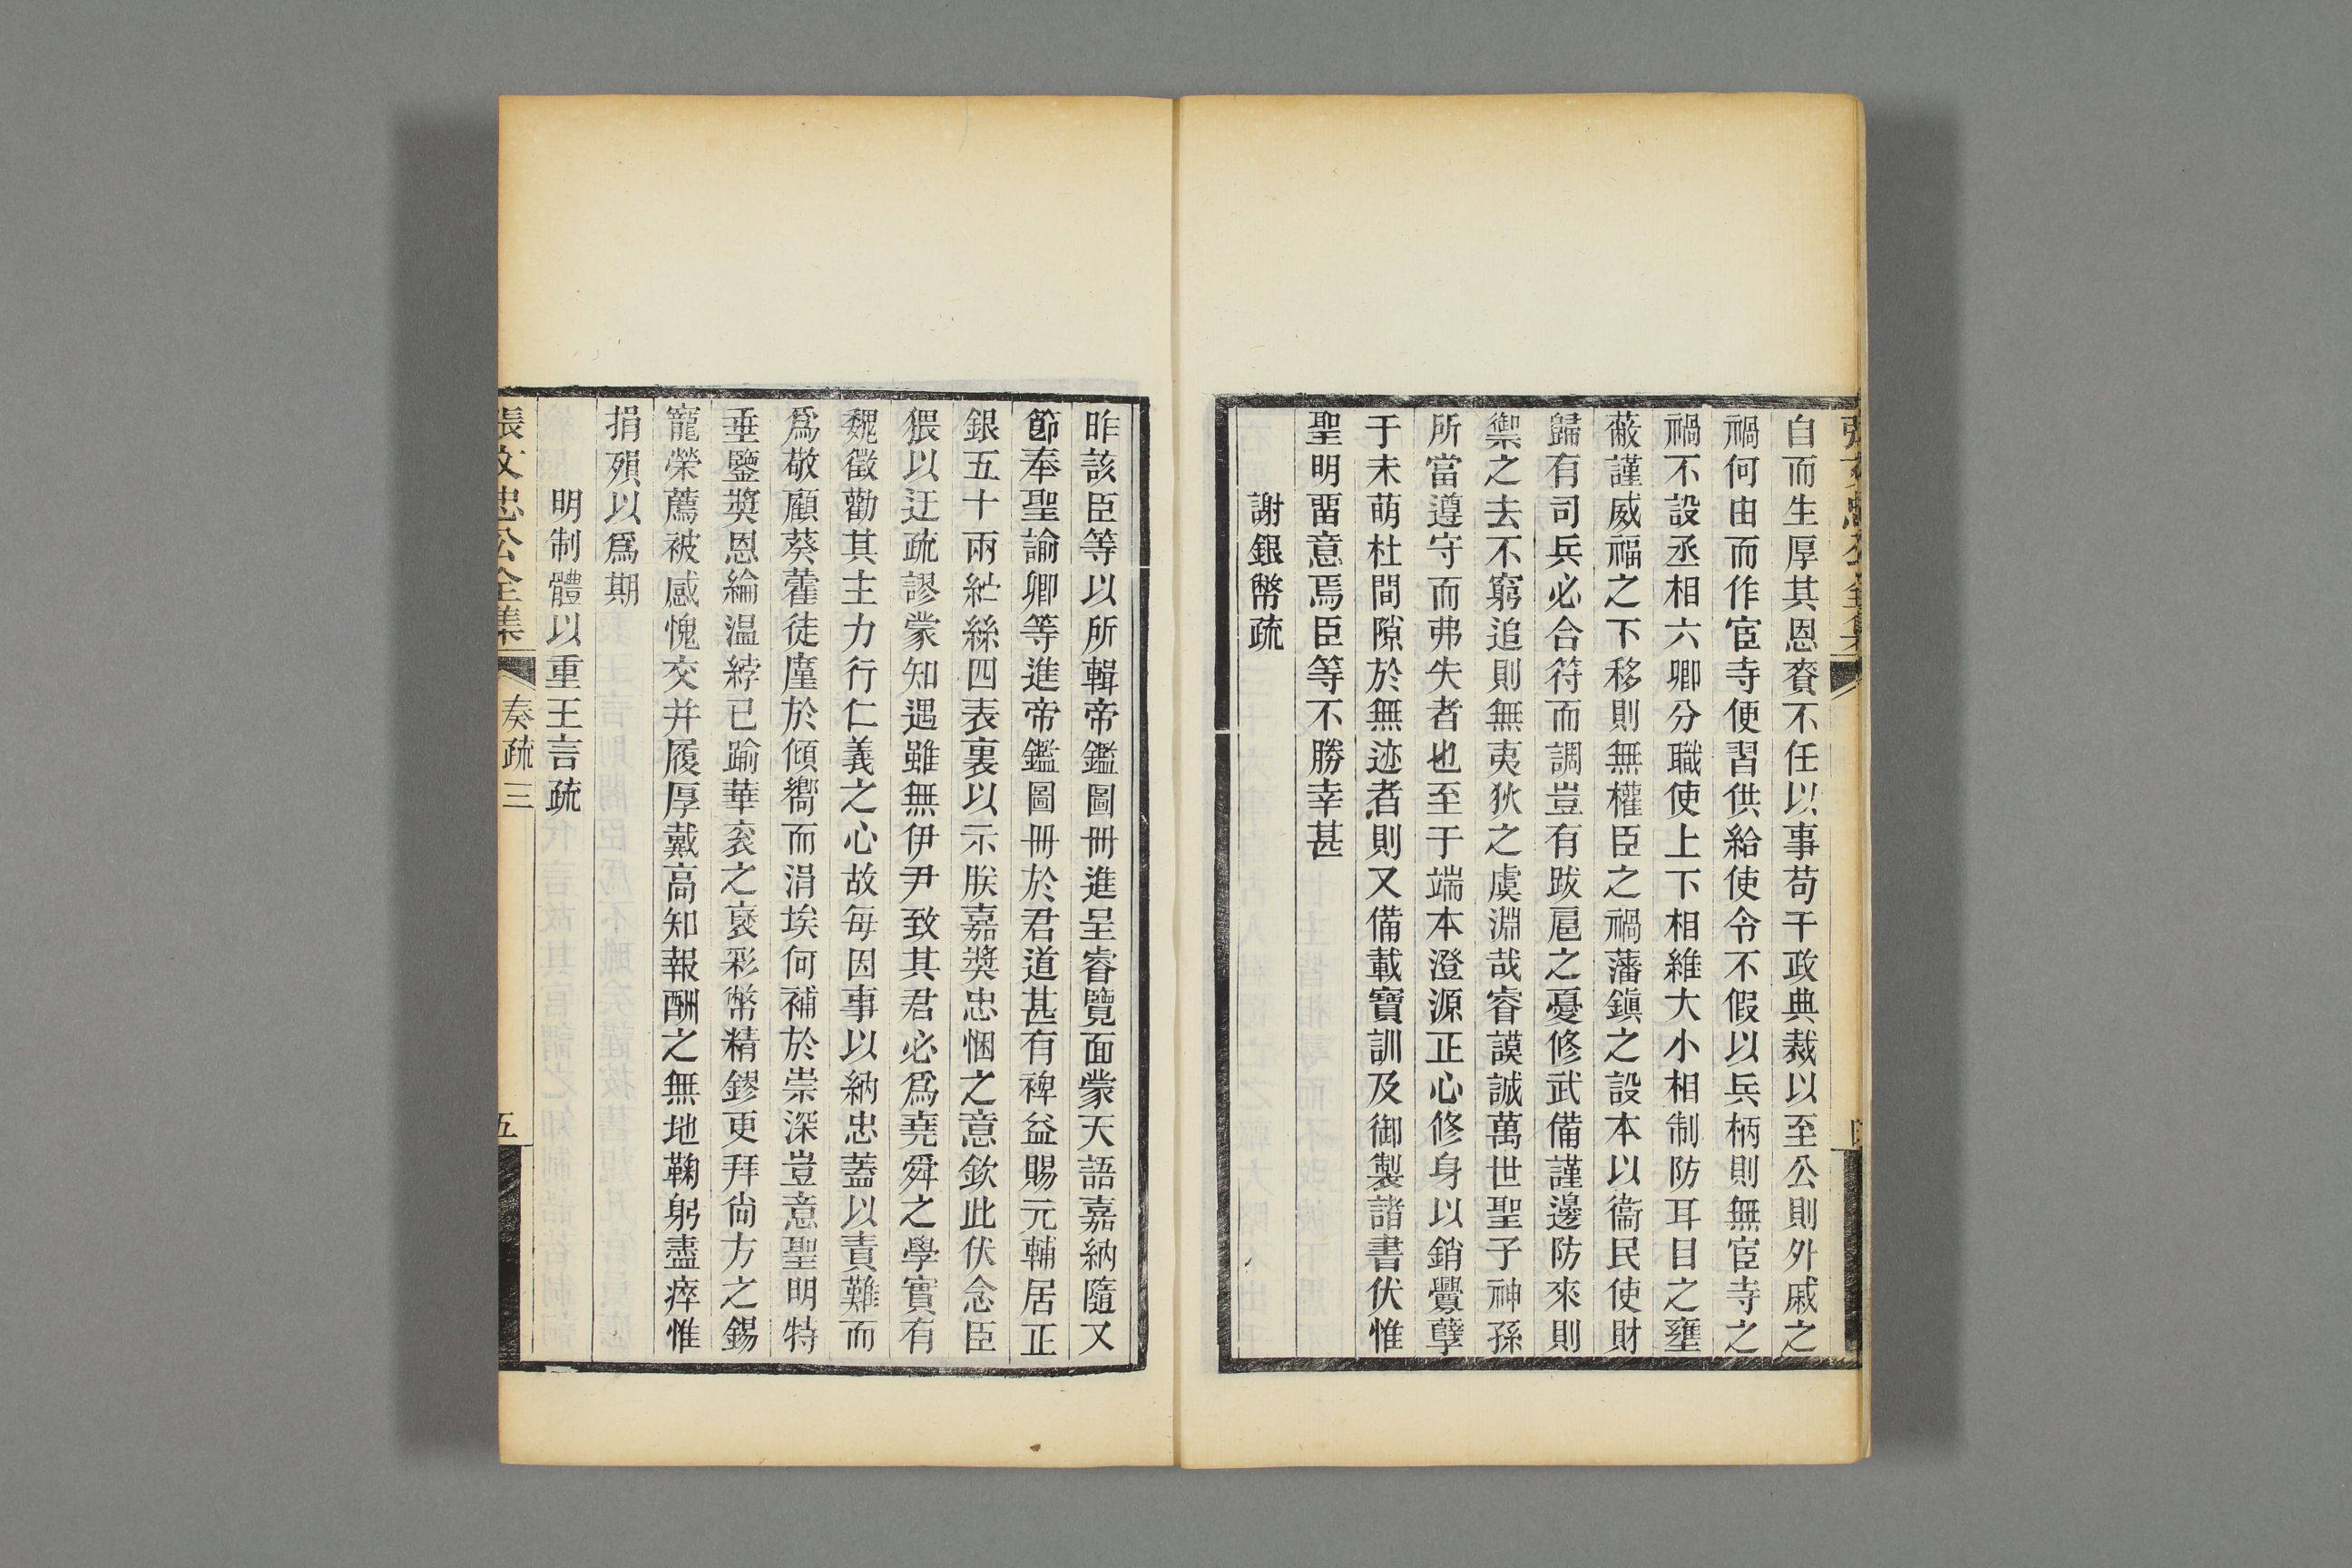 自而生厚其恩賚不任以事苟干政典裁以至公則外戚之
禍何由而作宦寺便習供給使令不假以兵柄則無宦寺之
禍不設丞相六卿分職使上下相維大小相制防耳目之壅
蔽謹威福之下移則無權臣之禍藩鎭之設本以衞民使財
歸有司兵必合符而調豈有跋扈之憂修武備謹邊防來則
禦之去不窮追則無夷狄之虞淵哉睿謨誠萬世聖子神孫
所當遵守而弗失者也至于端本澄源正心修身以銷釁孽
于未萌杜間隙於無迹者則又備載寶訓及御製諸書伏惟
聖明畱意焉臣等不勝幸甚
謝銀幣疏
昨該臣等以所輯帝鑑圖冊進呈睿覽面蒙天語嘉納隨又
節奉聖諭卿等進帝鑑圖冊於君道甚有裨益賜元輔居正
銀五十兩紵絲四表裏以示朕嘉奬忠悃之意欽此伏念臣
猥以迂疏謬蒙知遇雖無伊尹致其君必爲堯舜之學實有
魏徵勸其主力行仁義之心故每因事以納忠蓋以責難而
爲敬顧葵藿徒廑於傾嚮而涓埃何補於崇深豈意聖明特
垂鑒奬恩綸温綍已踰華衮之襃彩幣精鏐更拜尙方之錫
寵榮薦被感愧交并履厚戴高知報酬之無地鞠躬盡瘁惟
捐殞以爲期
明制體以重王言疏
張文忠公全集
奏疏三
五